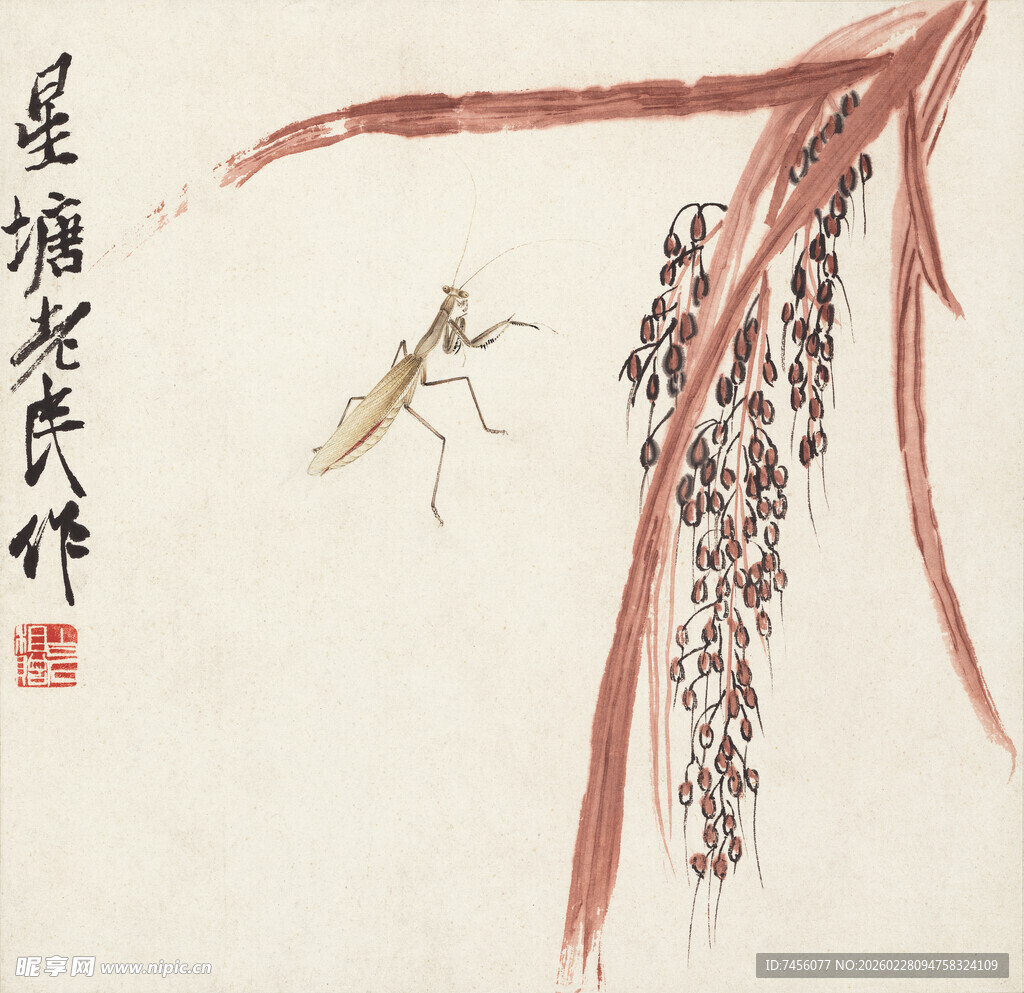 星塘老民作
木目上三
昵享网 www.nipic.cn
ID:7456077 NO:20260228094758324109